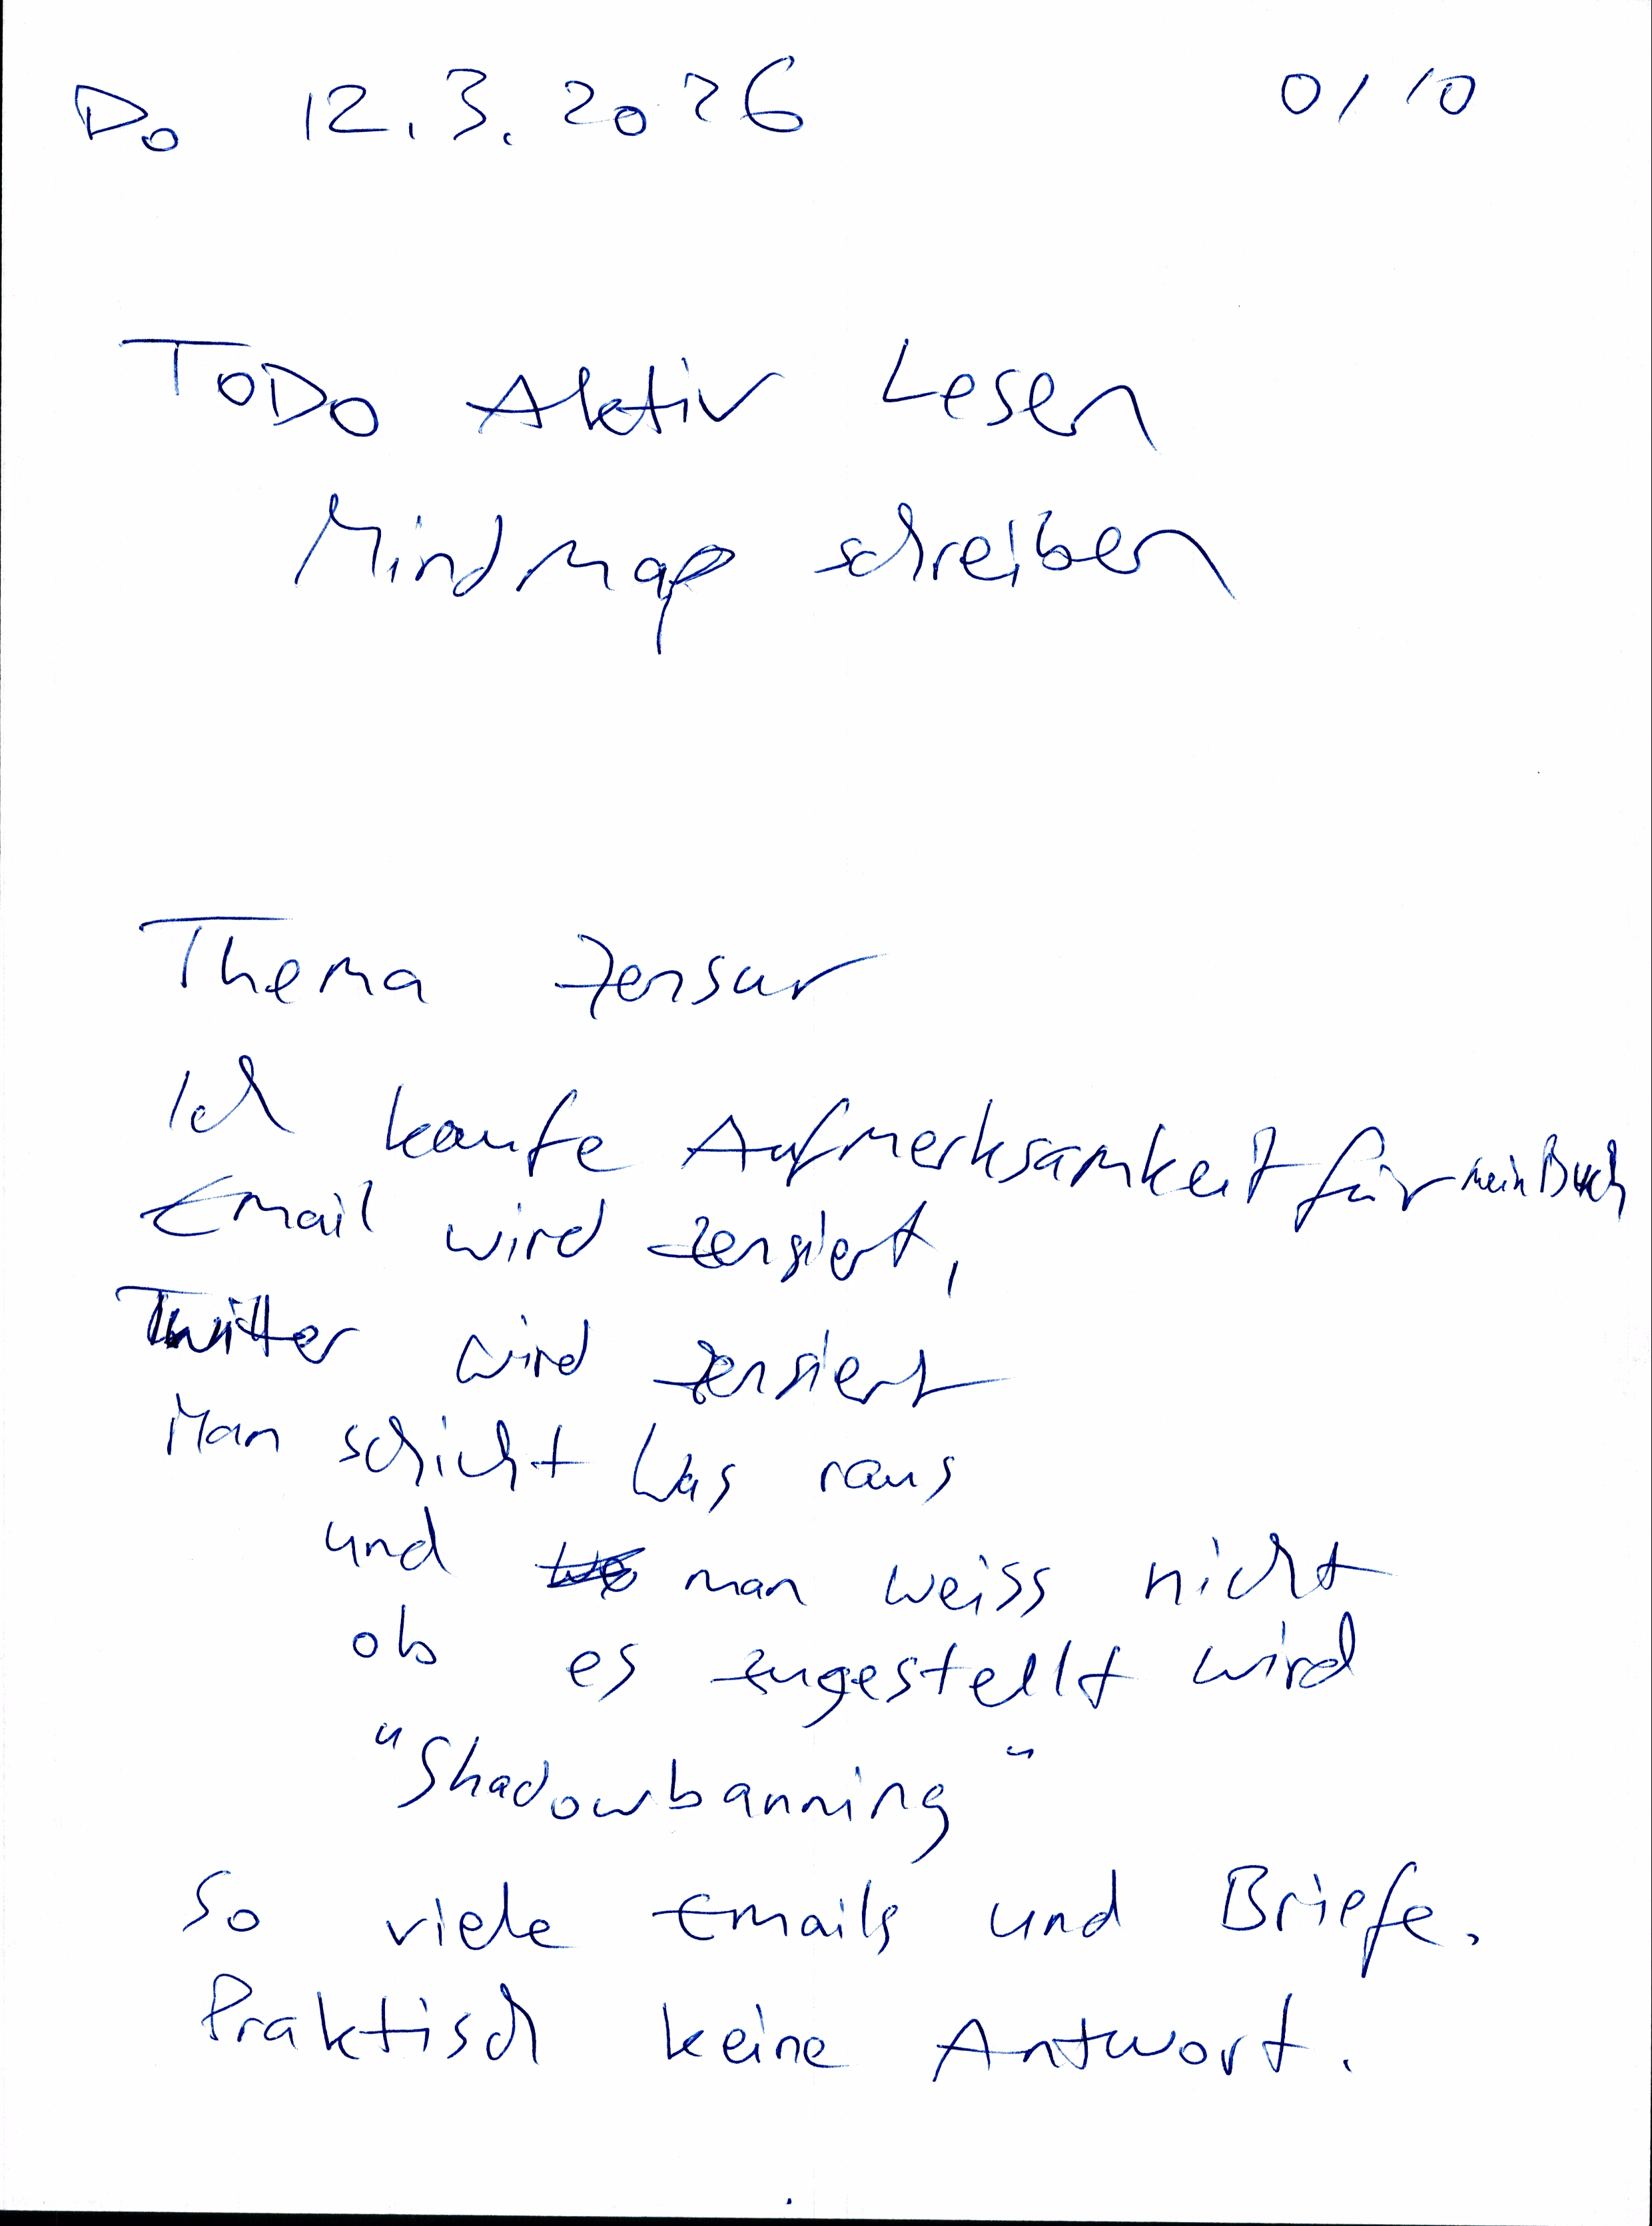 Do 12.3.2026 0/10
ToDo Aktiv Lesen
Mindmap schreiben
Thema Zensur
Ich kaufe Aufmerksamkeit für mein Buch
Email wird zensiert,
Twitter wird zensiert
Man schickt was raus
und man weiss nicht
ob es zugestellt wird
"Shadowbanning"
So viele Emails und Briefe.
Praktisch keine Antwort.